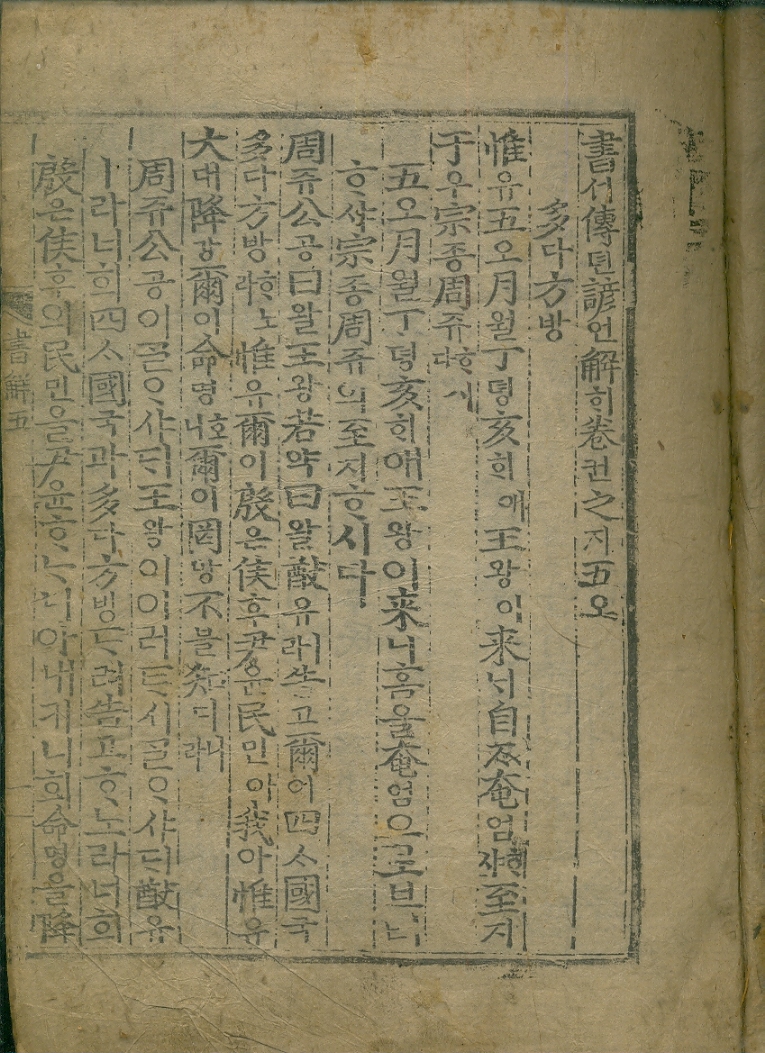 書셔傳뎐諺언解ᄒᆡ卷권之지五오
多다方방
惟유五오月월丁뎡亥ᄒᆡ애王왕이來ᄅᆡ自ᄌᆞ奄엄ᄒᆞ샤至지
于우宗종周쥬ᄒᆞ다시
五오月월丁뎡亥ᄒᆡ애王왕이來ᄅᆡᄒᆞᆷ을奄엄으로브터
ᄒᆞ샤宗종周쥬의至지ᄒᆞ시다
周쥬公공曰왈王왕若약曰왈猷유ㅣ라告고爾이四ᄉᆞ國국
多다方방ᄒᆞ노라惟유爾이殷은侯후尹윤民민아我아惟유
大대降강爾이命명ᄒᆞ니爾이罔망不블知디니라
周쥬公공이ᄀᆞᆯᄋᆞ샤ᄃᆡ王왕이이러ᄐᆞ시ᄀᆞᆯᄋᆞ샤ᄃᆡ猷유
ㅣ라너희四ᄉᆞ國국과多다方방ᄃᆞ려告고ᄒᆞ노라너희
殷은侯후의民민을尹윤ᄒᆞᄂᆞ니아내귀너희命명을降
書解五